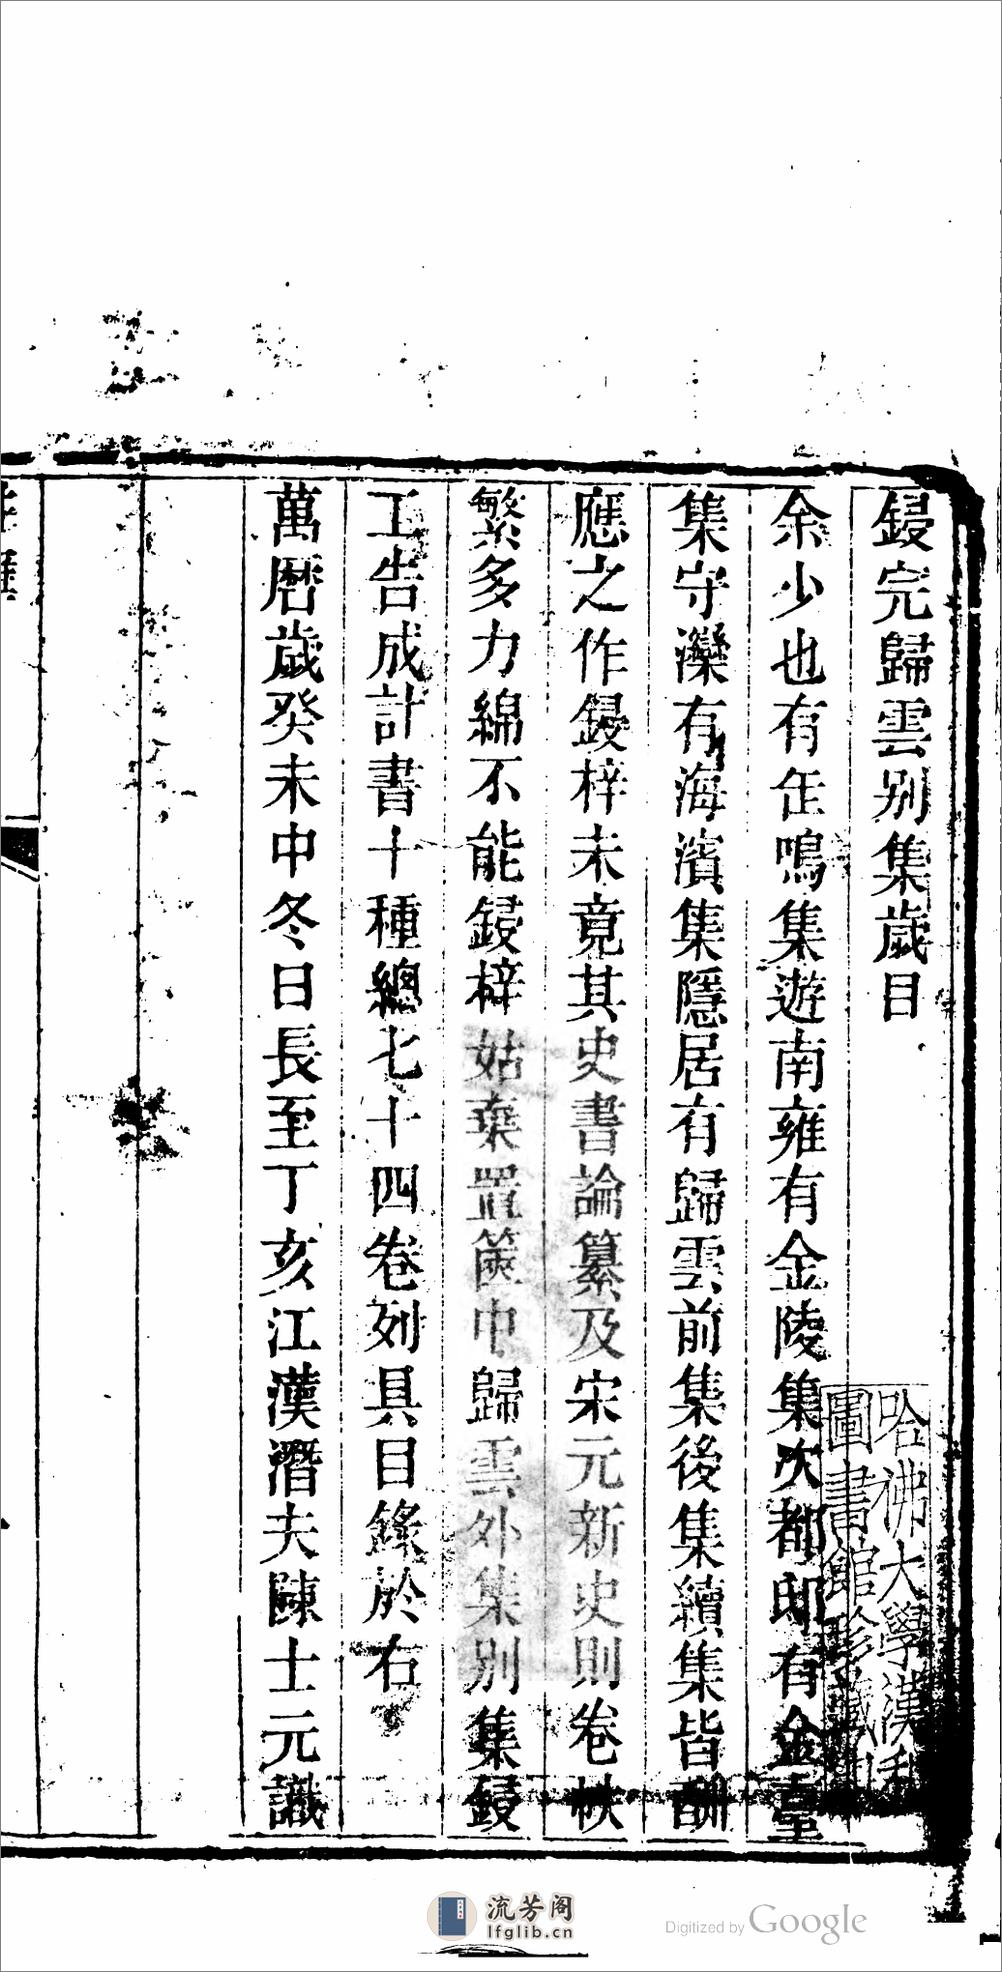 鋟完歸雲别集歲目
余少也有缶鳴集遊南雍有金陵集次都邸有金臺
集守灤有海濱集隱居有歸雲前集後集續集皆酬
應之作鋟梓未竟其史書論纂及宋元新史則卷帙
繁多力綿不能鋟梓姑棄置篋中歸雲外集别集鋟
工告成計書十種總七十四卷列具目錄於右
萬曆歲癸未中冬日長至丁亥江漢潛夫陳士元識
哈佛大學漢和
圖書館珍藏印
流芳阁
lfglib.cn
Digitized by Google